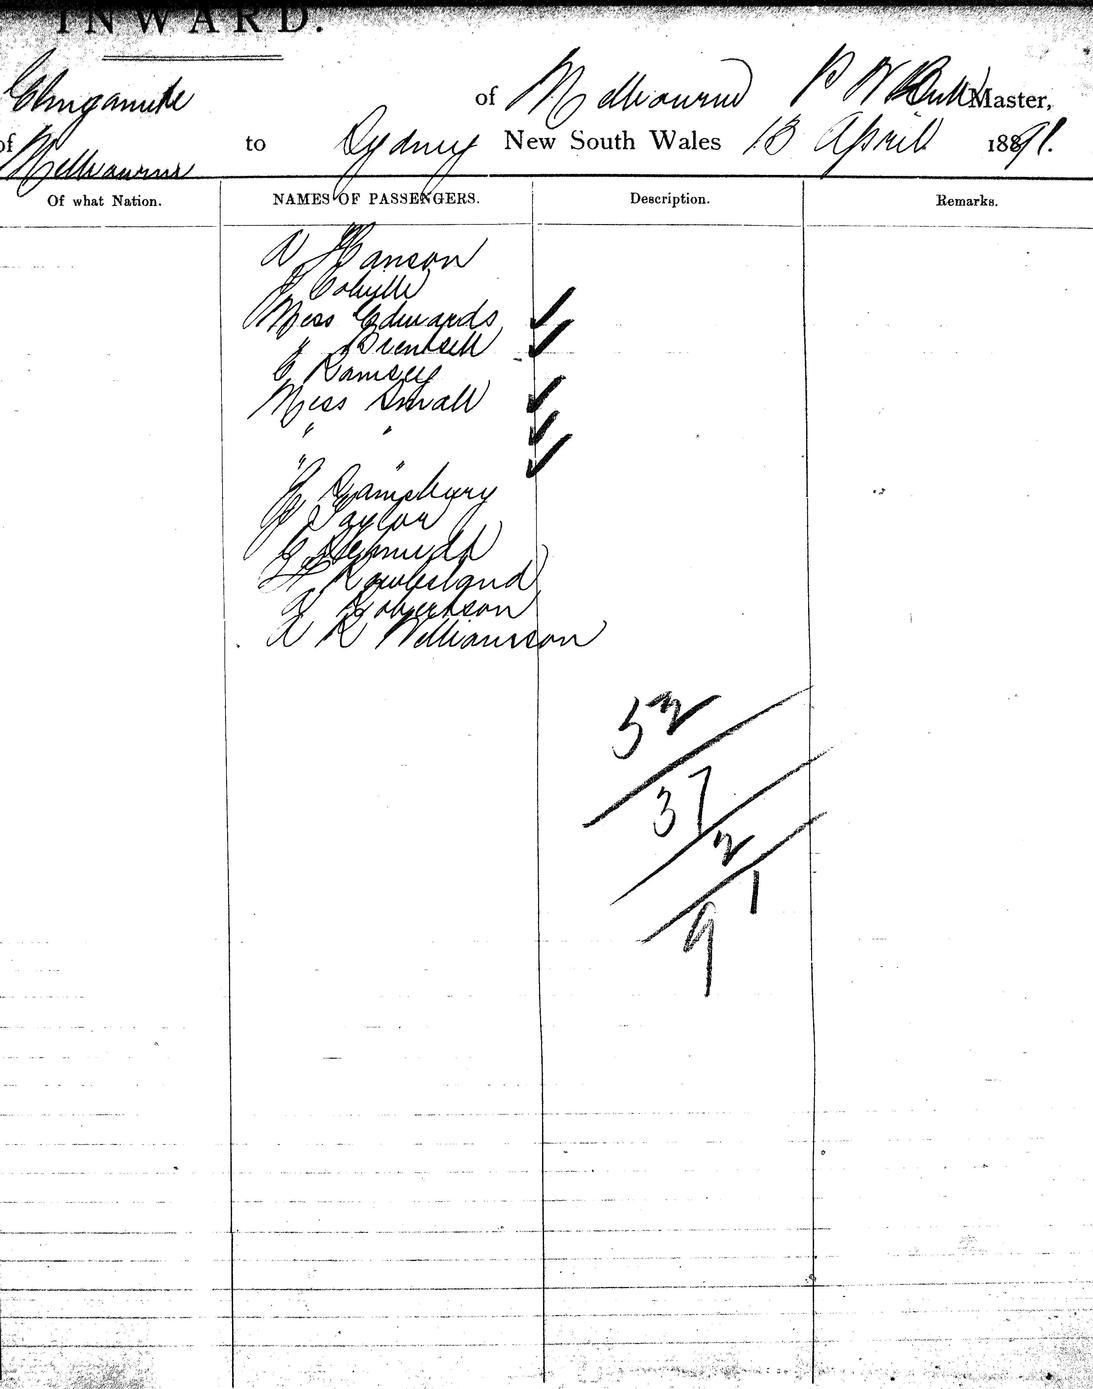 INWARD.
Elingamite of Melbourne P W Bull Master,
of Melbourne to Sydney New South Wales 13 April 1891.
Of what Nation. NAMES OF PASSENGERS. Description. Remarks.
A Hanson
J Colville
Miss Edwards ✓
" ✓
E Ramsey
Miss Small ✓
" " ✓
" " ✓
H Sainsbury
J Taylor
C Schmidt
H Rowlesland
A Robertson
A R Williamson
52
37
2
91